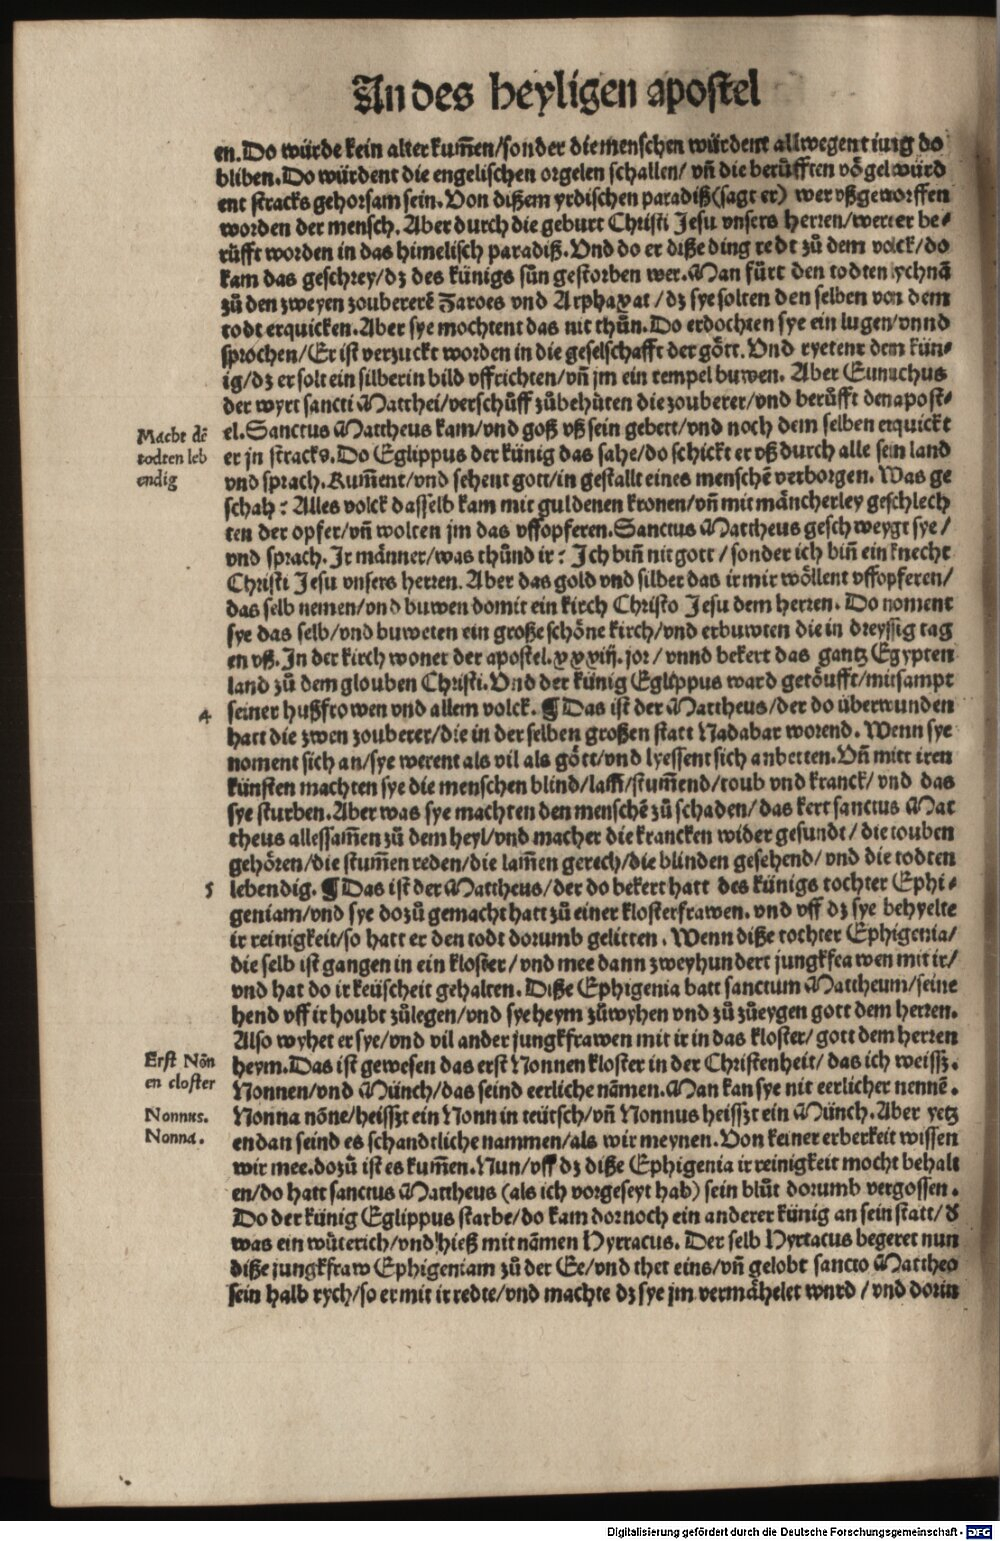 An des heyligen apostel
en. Do würde kein alter kum̄en/sonder die menschen würdent allwegent iung do
bliben. Do würdent die engelischen orgelen schallen/ vn̄ die berůfften vögel würd
ent stracks gehorsam sein. Von dißem yrdischen paradiß(sagt er) wer vßgeworffen
worden der mensch. Aber durch die geburt Christi Jesu vnsers herren/wer er be-
růfft worden in das himelisch paradiß. Vnd do er diße ding redt zů dem volck/do
kam das geschrey/dz des künigs sůn gestorben wer. Man fůrt den todten lychnā
zů den zweyen zoubererē Zaroes vnd Arphaxat/dz sye solten den selben von dem
todt erquicken. Aber sye mochtent das nit thůn. Do erdochten sye ein lugen/vnnd
sprochen/Er ist verzuckt worden in die geselschafft der gött. Vnd ryetent dem kün-
ig/dz er solt ein silberin bild vffrichten/vn̄ jm ein tempel buwen. Aber Eunuchus
der wyrt sancti Matthei/verschůff zůbehüten die zouberer/vnd berůfft den apost-
Macht dē
todten leb
endig
el. Sanctus Mattheus kam/vnd goß vß sein gebett/vnd noch dem selben erquickt
er jn stracks. Do Eglippus der künig das sahe/do schickt er vß durch alle sein land
vnd sprach. Kum̄ent/vnd sehent gott/in gestallt eines menschē verborgen. Was ge
schah? Alles volck dasselb kam mit guldenen kronen/vn̄ mit mäncherley geschlech
ten der opfer/vn̄ wolten jm das vffopferen. Sanctus Mattheus geschweygt sye/
vnd sprach. Jr männer/was thůnd ir? Ich bin̄ nit gott/sonder ich bin̄ ein knecht
Christi Jesu vnsers herren. Aber das gold vnd silber das ir mir wöllent vffopferen/
das selb nemen/vnd buwen domit ein kirch Christo Jesu dem herren. Do noment
sye das selb/vnd buweten ein große schöne kirch/vnd erbuwten die in dreyssig tag
en vß. In der kirch wonet der apostel.xxxiij.jor/vnnd bekert das gantz Egypten
land zů dem glouben Christi. Vnd der künig Eglippus ward getöufft/mitsampt
4
seiner hußfrowen vnd allem volck. ¶ Das ist der Mattheus/der do überwunden
hatt die zwen zouberer/die in der selben großen statt Nadabar worend. Wenn sye
noment sich an/sye werent als vil als gött/vnd lyessent sich anbetten. Vn̄ mitt iren
künsten machten sye die menschen blind/lam̄/stum̄end/toub vnd kranck/vnd das
sye sturben. Aber was sye machten den menschē zů schaden/das kert sanctus Mat
theus allessam̄en zů dem heyl/vnd machet die krancken wider gesundt/die touben
gehören/die stum̄en reden/die lam̄en gerech/die blinden gesehend/vnd die todten
5
lebendig. ¶ Das ist der Mattheus/der do bekert hatt des künigs tochter Ephi-
geniam/vnd sye dozů gemacht hatt zů einer klosterfrawen. vnd vff dz sye behyelte
ir reinigkeit/so hatt er den todt dorumb gelitten. Wenn diße tochter Ephigenia/
die selb ist gangen in ein kloster/vnd mee dann zweyhundert jungkfrawen mit ir/
vnd hat do ir keüscheit gehalten. Diße Ephigenia batt sanctum Mattheum/seine
hend vff ir houbt zůlegen/vnd sye heym zůwyhen vnd zů zůeygen gott dem herren.
Also wyhet er sye/vnd vil ander jungkfrawen mit ir in das kloster/gott dem herren
Erst Nōn
en closter
heym. Das ist gewesen das erst Nonnen kloster in der Christenheit/das ich weissz.
Nonnen/vnd Münch/das seind eerliche nämen. Man kan sye nit eerlicher nennē.
Nonnus.
Nonna.
Nonna nōne/heisszt ein Nonn in teütsch/vn̄ Nonnus heisszt ein Münch. Aber yetz
endan seind es schandtliche nammen/als wir meynen. Von keiner erberkeit wissen
wir mee. dozů ist es kum̄en. Nun/vff dz diße Ephigenia ir reinigkeit mocht behalt
en/do hatt sanctus Mattheus (als ich vorgeseyt hab) sein blůt dorumb vergossen.
Do der künig Eglippus starbe/do kam dornoch ein anderer künig an sein statt/d'
was ein wüterich/vnd hieß mit nämen Hyrtacus. Der selb Hyrtacus begeret nun
diße jungkfraw Ephigeniam zů der Ee/vnd thet eins/vn̄ gelobt sancto Mattheo
sein halb rych/so er mit ir redte/vnd machte dz sye jm vermähelet wurd/vnd dorin
Digitalisierung gefördert durch die Deutsche Forschungsgemeinschaft - DFG